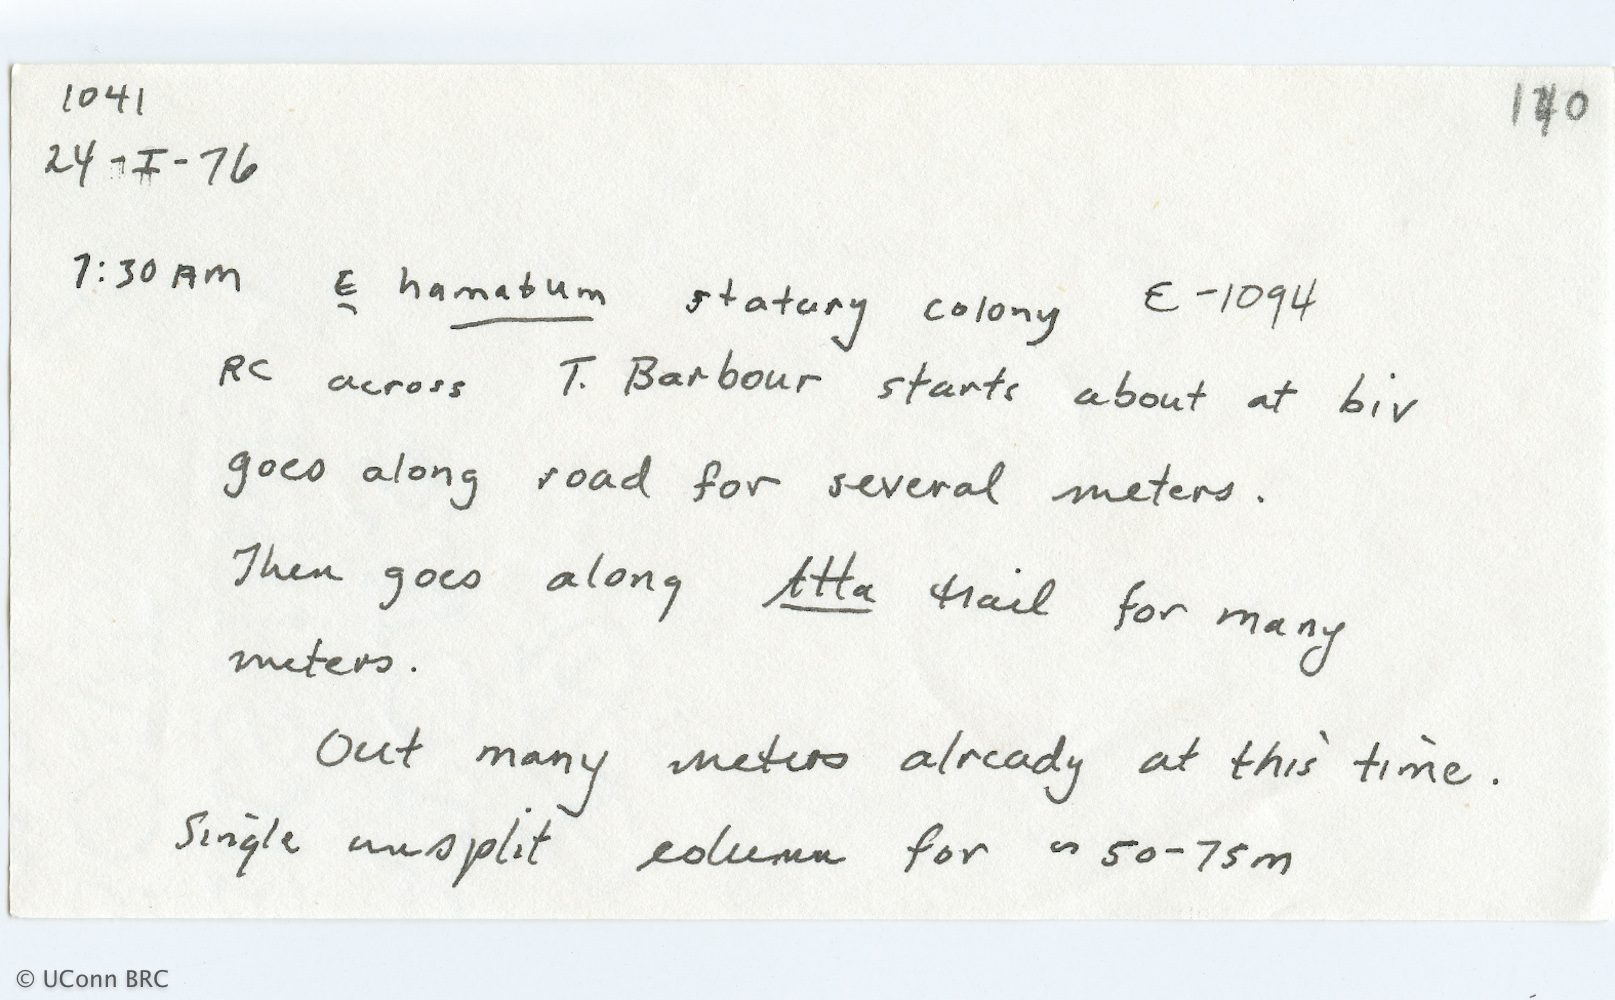 1041
140
24-I-76
7:30 AM E hamatum statary colony E-1094
RC across T. Barbour starts about at biv
goes along road for several meters.
Then goes along Atta trail for many
meters.
Out many meters already at this time.
Single unsplit column for ~ 50-75m
© UConn BRC